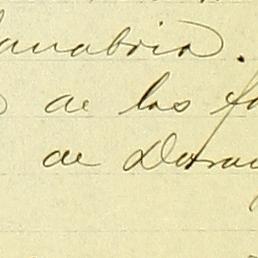 anabria.
de las fa
de Duran